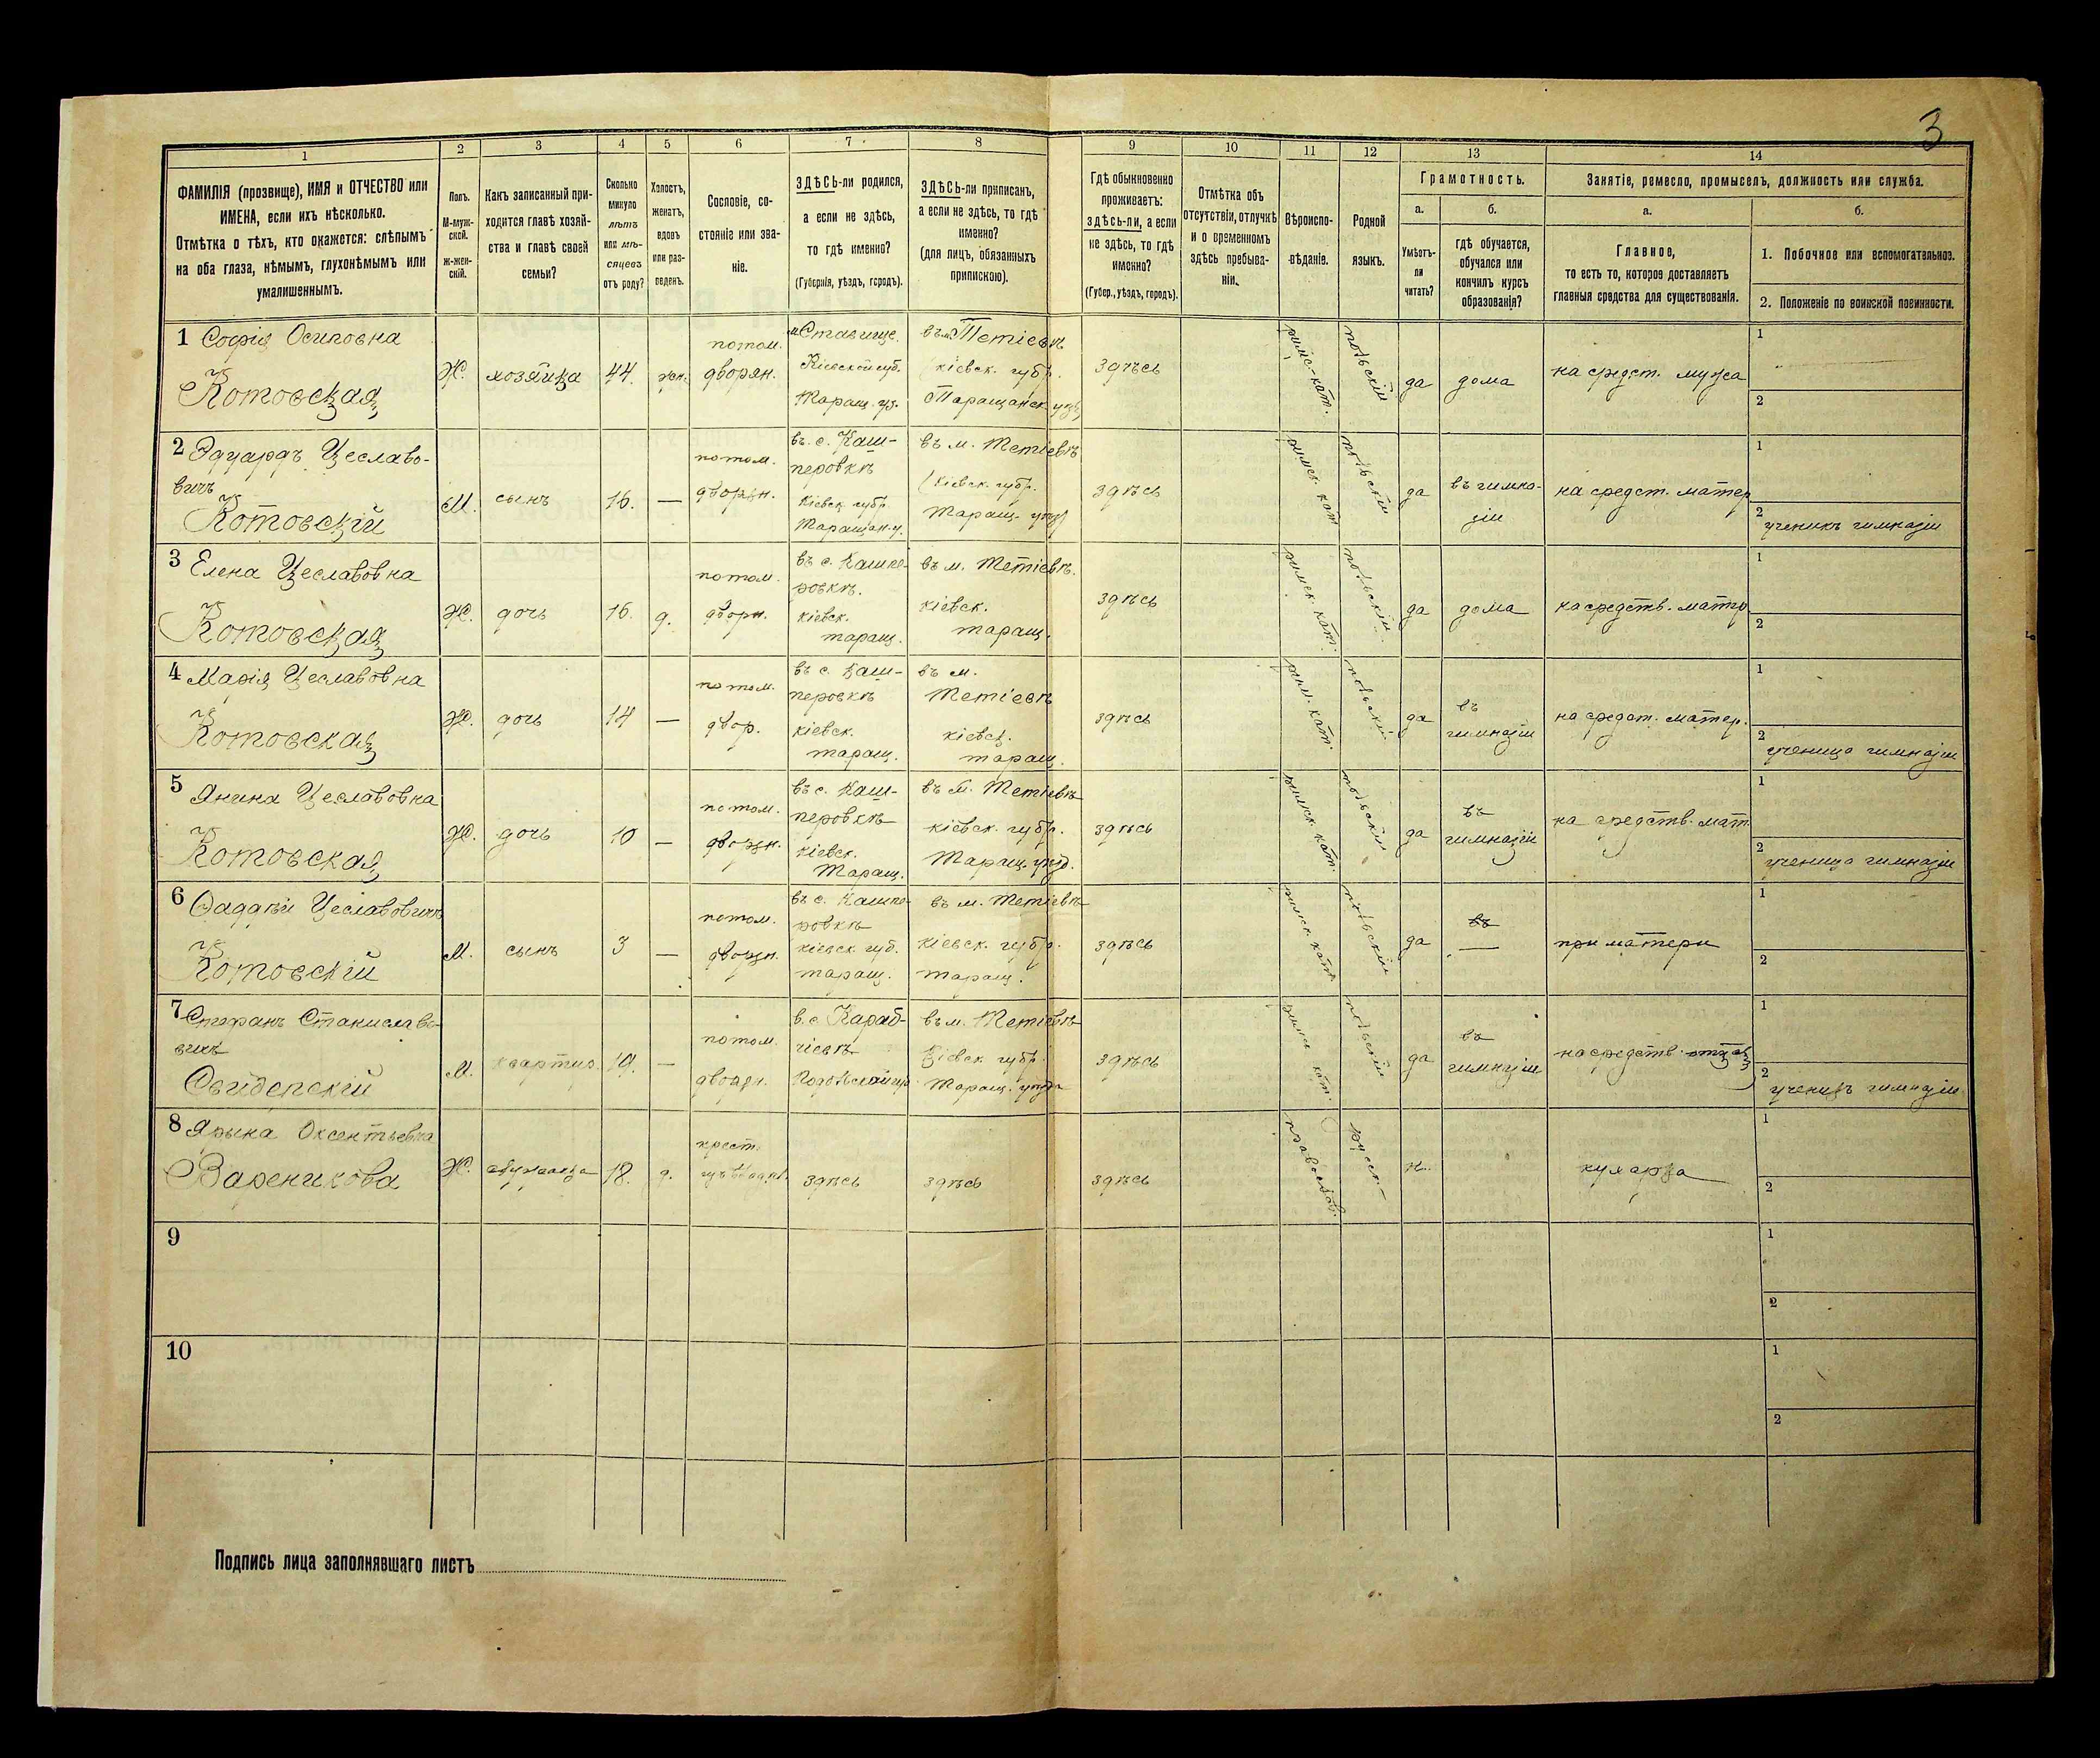 3
1
2
3
4
5
6
7
8
9
10
11
12
13
14
ФАМИЛІЯ (прозвище), ИМЯ и ОТЧЕСТВО или
ИМЕНА, если ихъ нѣсколько.
Отмѣтка о тѣхъ, кто окажется: слѣпымъ
на оба глаза, нѣмымъ, глухонѣмымъ или
умалишеннымъ.
Полъ.
М-муж-
ской.
ж-жен-
скій.
Какъ записанный при-
ходится главѣ хозяй-
ства и главѣ своей
семьи?
Сколько
минуло
лѣтъ
или мѣ-
сяцевъ
отъ роду?
Холостъ,
женатъ,
вдовъ
или раз-
веденъ.
Сословіе, со-
стояніе или зва-
ніе.
ЗДѢСЬ-ли родился,
а если не здѣсь,
то гдѣ именно?
(Губернія, уѣздъ, городъ).
ЗДѢСЬ-ли приписанъ,
а если не здѣсь, то гдѣ
именно?
(для лицъ, обязанныхъ
припискою).
Гдѣ обыкновенно
проживаетъ:
ЗДѢСЬ-ли, а если
не здѣсь, то гдѣ
именно?
(Губер., уѣздъ, городъ).
Отмѣтка объ
отсутствіи, отлучкѣ
и о временномъ
здѣсь пребыва-
ніи.
Вѣроиспо-
вѣданіе.
Родной
языкъ.
Грамотность.
а.
Умѣетъ-
ли
читать?
б.
гдѣ обучается,
обучался или
кончилъ курсъ
образованія?
Занятіе, ремесло, промыселъ, должность или служба.
а.
Главное,
то есть то, которое доставляетъ
главныя средства для существованія.
б.
1. Побочное или вспомогательное.
2. Положеніе по воинской повинности.
1 Софія Осиповна
Котовская
Ж.
хозяйка
44.
потом.
дворян.
м. Ставище.
Кіевской губ.
Таращ. уѣ.
въ м. Тетіевѣ
кіевск. губр.
Таращанск. уѣз
здѣсь
римс.-кат.
польскій
да
дома
на средст. мужа
1
2
2 Эдуардъ Цеславо-
вичъ
Котовскій
М.
сынъ
16.
—
потом.
дворян.
въ с. Каш-
перовкѣ
Кіевск губр
Таращан. у.
въ м. Тетіевѣ
(Кіевск. губр.
Таращ. уѣзд)
здѣсь
римск. кат
польскій
да
въ гимна-
зіи
на средст. матер
1
2
ученикъ гимназіи
3 Елена Цеславовна
Котовская
Ж.
дочь
16.
д.
потом.
дворн.
въ с. Кашпе-
ровкѣ.
кіевск.
таращ.
въ м. Тетіевѣ.
кіевск.
таращ.
здѣсь
римск. кат.
польскій
да
дома
на средств. матер
1
2
4 Марія Цеславовна
Котовская
Ж.
дочь
14
—
потом.
двор.
въ с. Каш-
перовкѣ
кіевск.
таращ.
въ м.
Тетіевѣ
кіевск.
таращ.
здѣсь
рим. кат.
польскій
да
въ
гимназіи
на средст. матер.
1
2
ученица гимназіи
5 Янина Цеславовна
Котовская
Ж.
дочь
10
—
потом.
дворян.
въ с. Каш-
перовкѣ
кіевск.
Таращ.
въ м. Тетіевѣ
кіевск. губр.
Таращ. уѣзд.
здѣсь
римск. кат.
польскій
да
въ
гимназіи
на средств. мат.
1
2
ученица гимназіи
6 Фаддѣй Цеславовичъ
Котовскій
М.
сынъ
3
—
потом.
дворян.
въ с. Кашпе-
ровкѣ
кіевск губ.
таращ.
въ м. Тетіевѣ
кіевск. губр.
таращ.
здѣсь
римск кат.
польскій
да
въ
—
при матери
1
2
7 Стефанъ Станиславо-
вичъ
Свидерскій
М.
квартир.
19.
—
потом.
дворян.
в. с. Караб-
чіевѣ
Подольской гу.
въ м. Тетіевѣ
Кіевск губр.
Таращ. уѣзд
здѣсь
римск кат.
польскій
да
въ
гимназіи
на средств. отца
1
2
ученикъ гимназіи
8 Ярына Оксентьевна
Вареникова
Ж.
служанка
18.
д.
крест.
здѣсь
здѣсь
здѣсь
православ.
русск.
н.
кухарка
1
2
9
1
2
10
1
2
Подпись лица заполнявшаго листъ